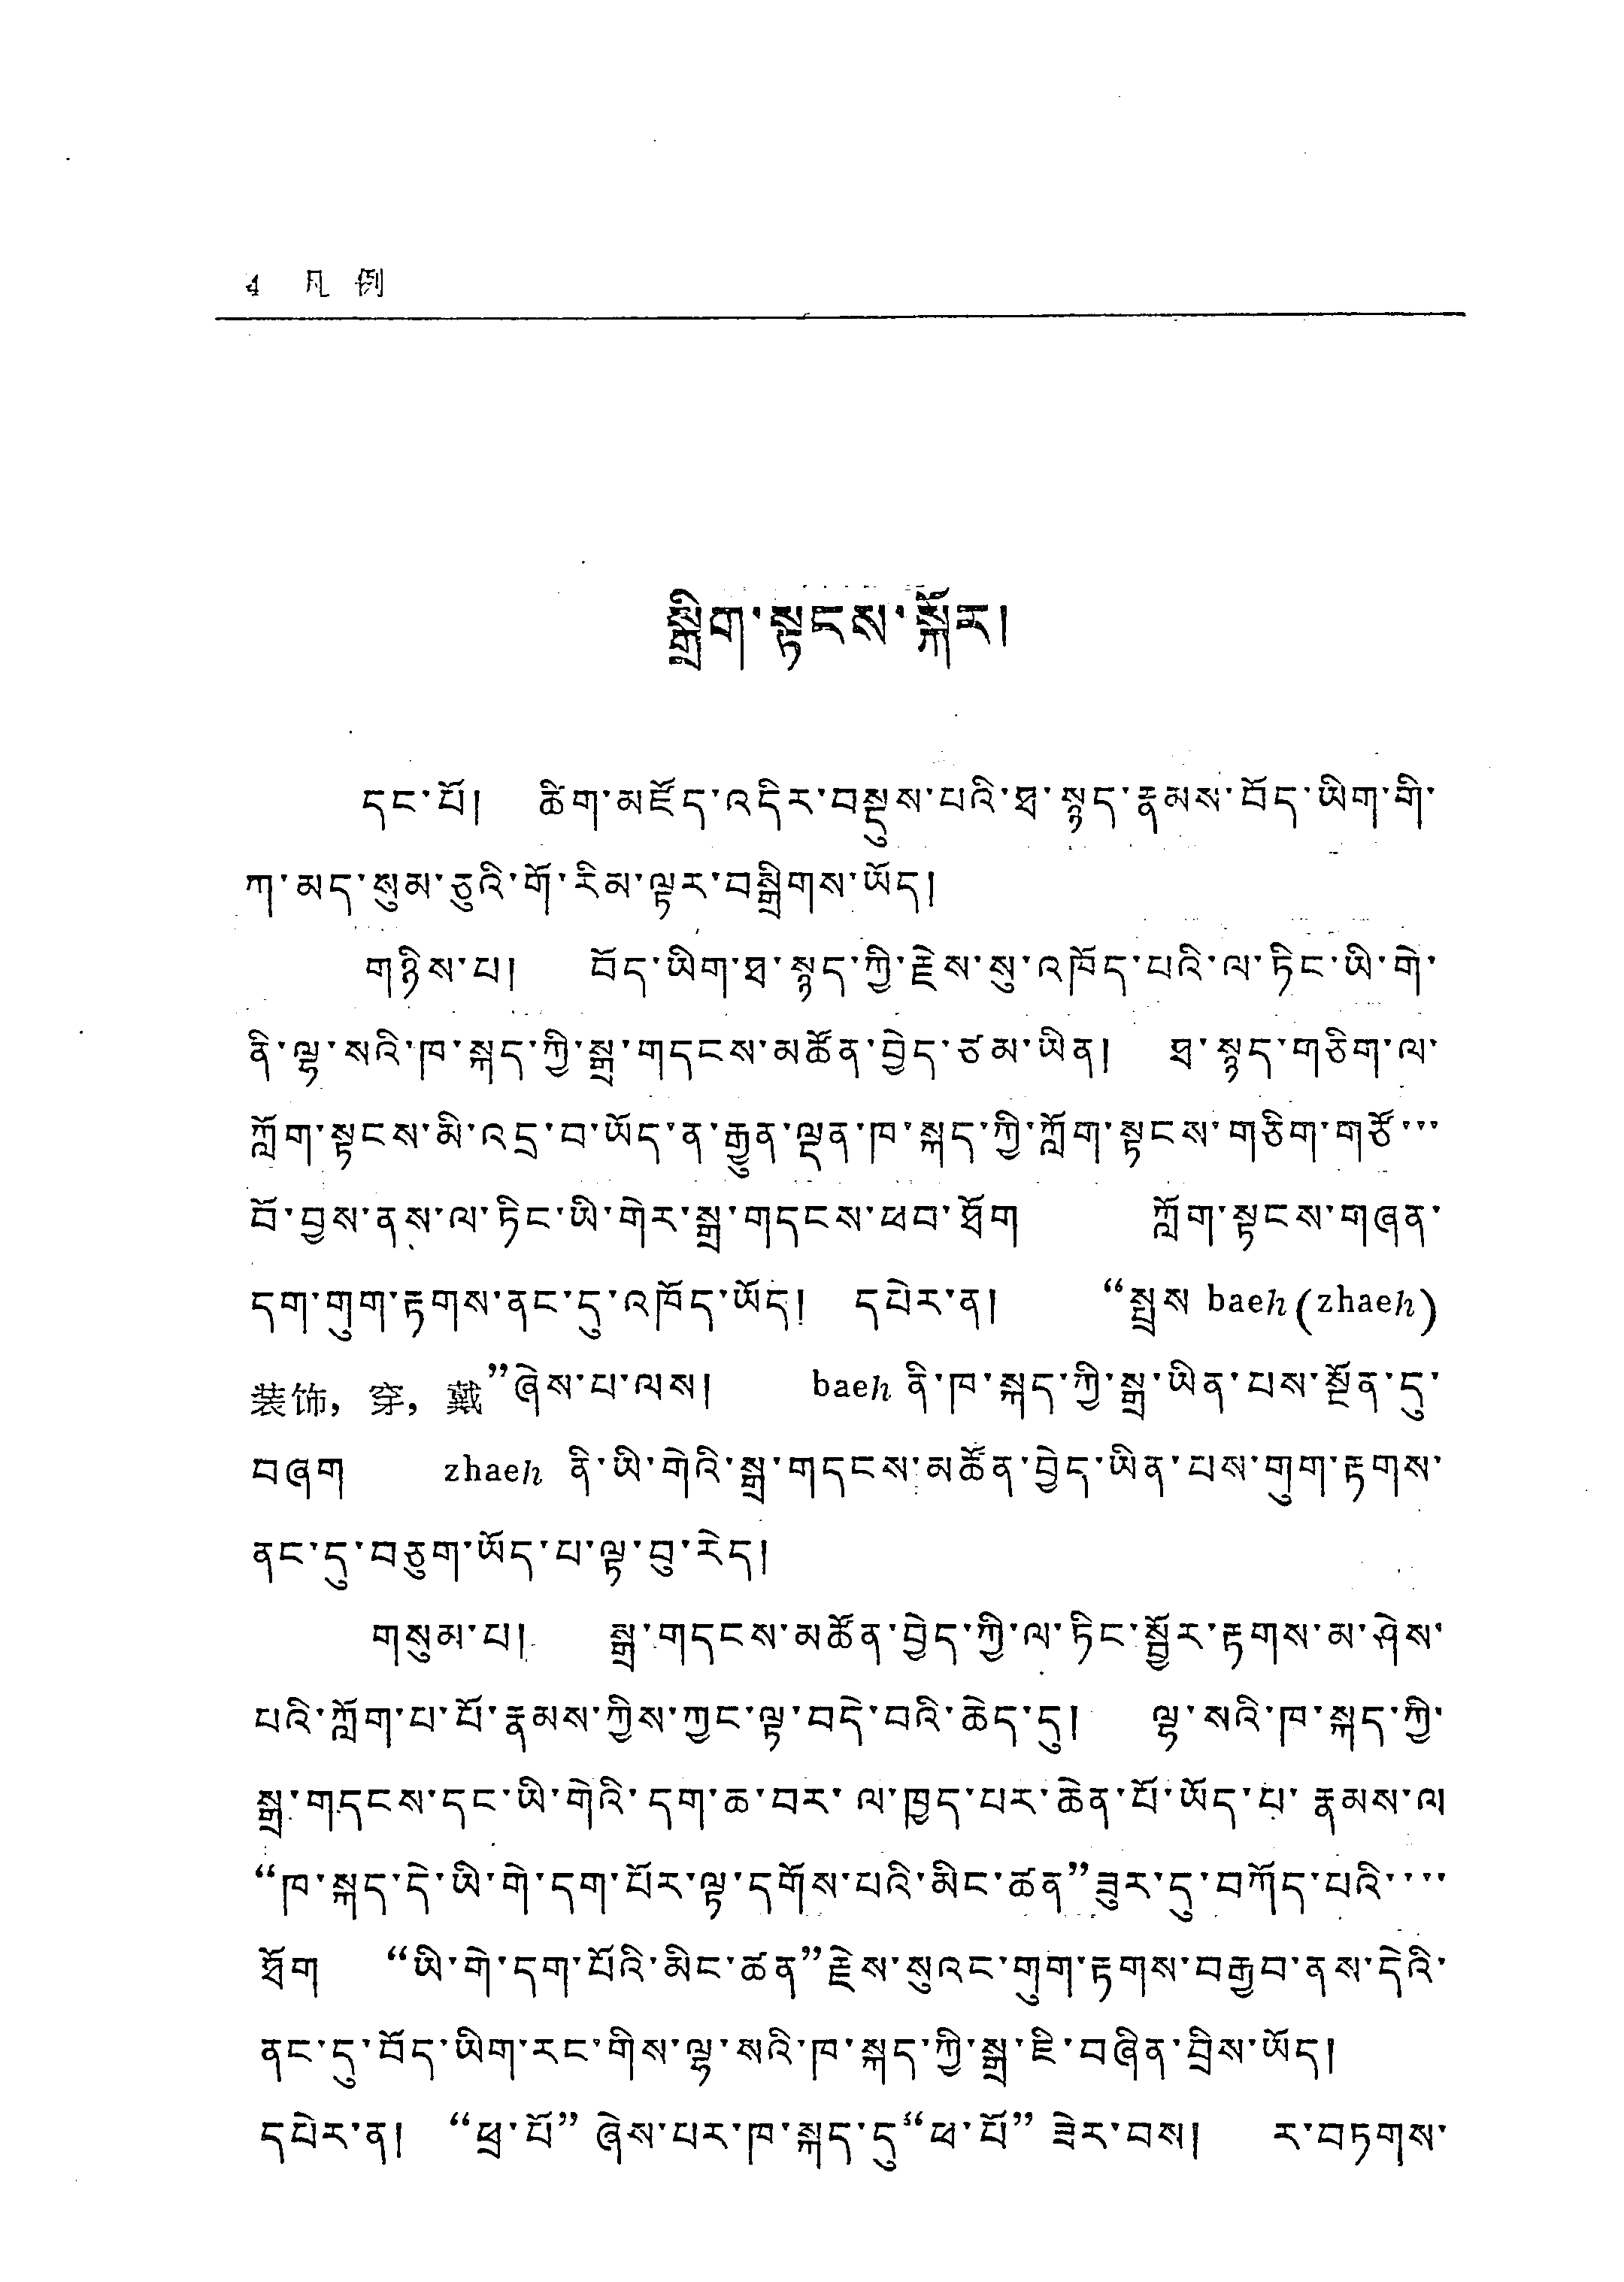 4 凡 例
སྒྲིག་སྟངས་སྐོར།
དང་པོ། ཚིག་མཛོད་འདིར་བསྡུས་པའི་ཐ་སྙད་རྣམས་བོད་ཡིག་གི་
ཀ་མད་སུམ་ཅུའི་གོ་རིམ་ལྟར་བསྒྲིགས་ཡོད།
གཉིས་པ། བོད་ཡིག་ཐ་སྙད་ཀྱི་རྗེས་སུ་འཁོད་པའི་ལ་ཏིང་ཡི་གེ་
ནི་ལྷ་སའི་ཁ་སྐད་ཀྱི་སྒྲ་གདངས་མཚོན་བྱེད་ཙམ་ཡིན། ཐ་སྙད་གཅིག་ལ་
ཀློག་སྟངས་མི་འདྲ་བ་ཡོད་ན་རྒྱུན་ལྡན་ཁ་སྐད་ཀྱི་ཀློག་སྟངས་གཅིག་གཙོ་་་
བོ་བྱས་ནས་ལ་ཏིང་ཡི་གེར་སྒྲ་གདངས་ཕབ་ཐོག ཀློག་སྟངས་གཞན་
དག་གུག་རྟགས་ནང་དུ་འཁོད་ཡོད། དཔེར་ན། “སྤྲས baeh(zhaeh)
装饰，穿，戴”ཞེས་པ་ལས། baeh ནི་ཁ་སྐད་ཀྱི་སྒྲ་ཡིན་པས་སྔོན་དུ་
བཞག zhaeh ནི་ཡི་གེའི་སྒྲ་གདངས་མཚོན་བྱེད་ཡིན་པས་གུག་རྟགས་
ནང་དུ་བཅུག་ཡོད་པ་ལྟ་བུ་རེད།
གསུམ་པ། སྒྲ་གདངས་མཚོན་བྱེད་ཀྱི་ལ་ཏིང་སྦྱོར་རྟགས་མ་ཤེས་
པའི་ཀློག་པ་པོ་རྣམས་ཀྱིས་ཀྱང་ལྟ་བདེ་བའི་ཆེད་དུ། ལྷ་སའི་ཁ་སྐད་ཀྱི་
སྒྲ་གདངས་དང་ཡི་གེའི་དག་ཆ་བར་ ལ་ཁྱད་པར་ཆེན་པོ་ཡོད་པ་ རྣམས་ལ
“ཁ་སྐད་དེ་ཡི་གེ་དག་པོར་ལྟ་དགོས་པའི་མིང་ཚན”ཟུར་དུ་བཀོད་པའི་་་་
ཐོག “ཡི་གེ་དག་པོའི་མིང་ཚན”རྗེས་སུའང་གུག་རྟགས་བརྒྱབ་ནས་དེའི་
ནང་དུ་བོད་ཡིག་རང་གིས་ལྷ་སའི་ཁ་སྐད་ཀྱི་སྒྲ་ཇི་བཞིན་བྲིས་ཡོད།
དཔེར་ན། “ཕྲ་པོ” ཞེས་པར་ཁ་སྐད་དུ“ཕ་པོ” ཟེར་བས། ར་བཏགས་